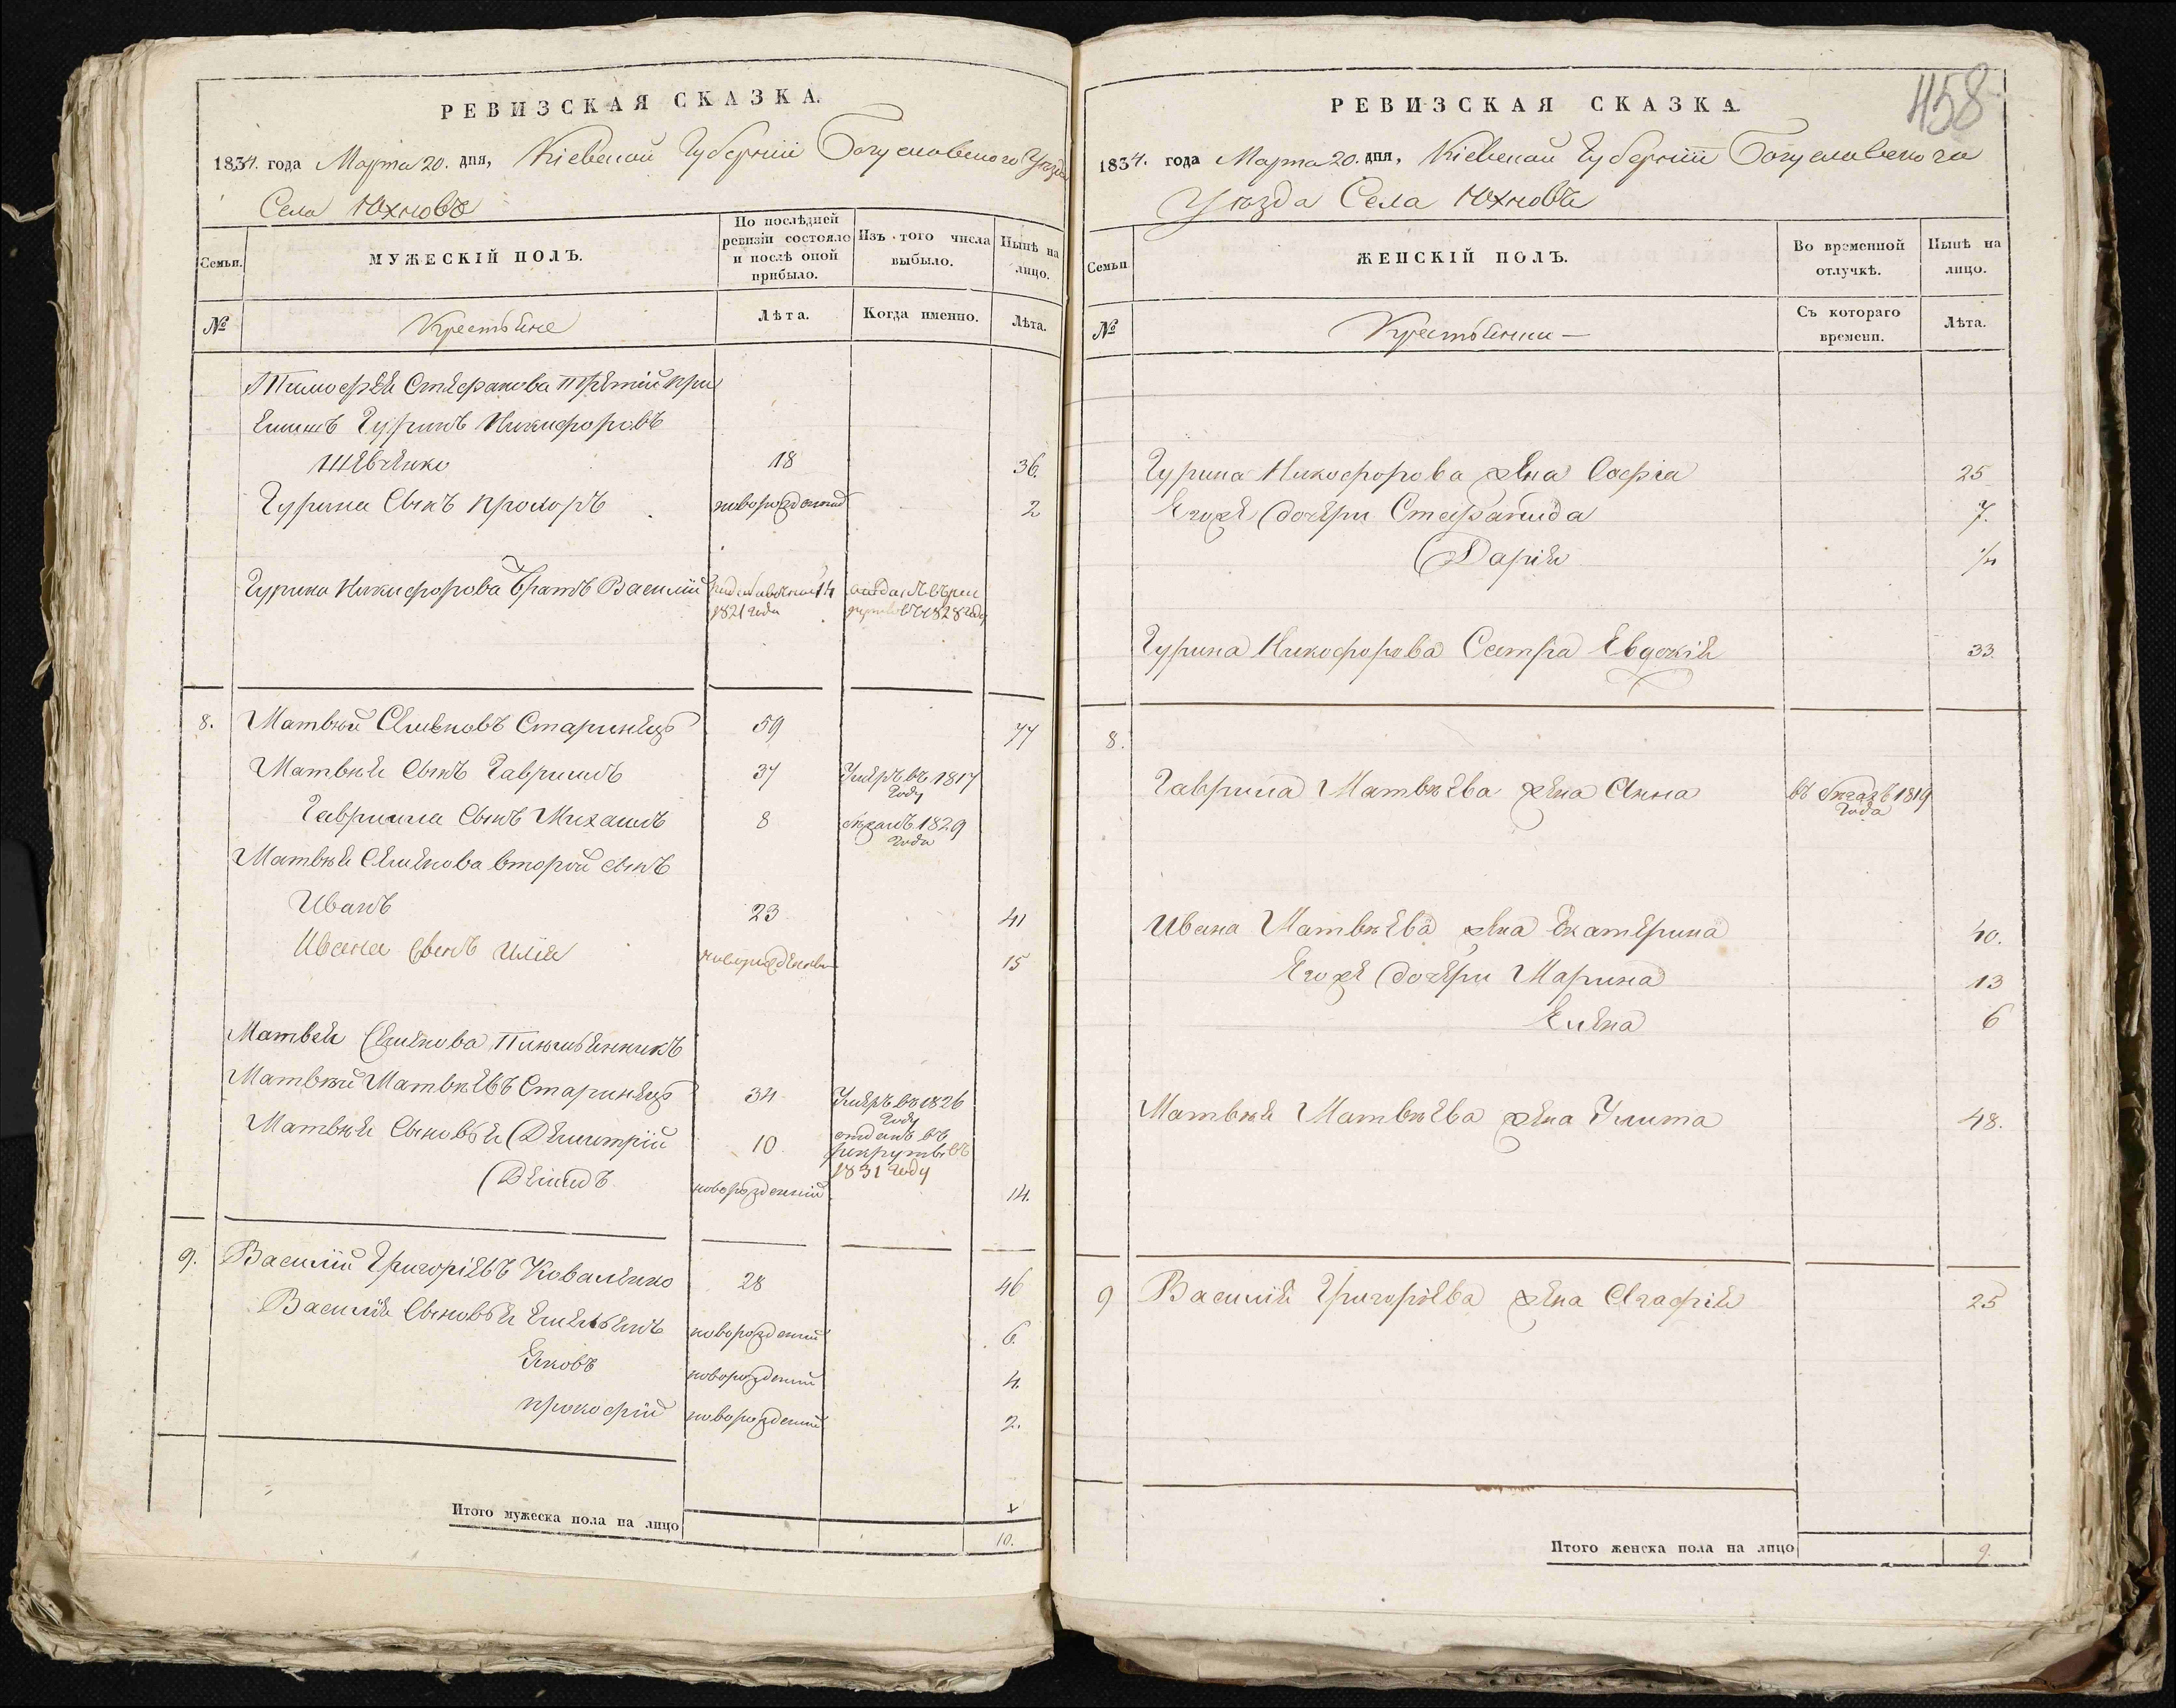 РЕВИЗСКАЯ СКАЗКА.
1834. года Марта 20. дня, Кіевской Губерніи Богуславского Уѣзда
Села Юхновъ
Семьи.
МУЖЕСКІЙ ПОЛЪ.
По послѣдней ревизіи состояло и послѣ оной прибыло.
Изъ того числа выбыло.
Нынѣ на лицо.
№
Крестьяне
Лѣта.
Когда именно.
Лѣта.
Тимофея Стефанова третій при
емишъ Гуринъ Никифоровъ
Шевченко 18 36.
Гурина Сынъ Прохоръ новорожденный 2
Гурина Никифорова братъ Василій 14 отданъ въ рек
1821 года рутывъ 1828 году
8. Матвѣй Семеновъ Старинецъ 59 77
Матвѣя Сынъ Гавріилъ 37 Умеръ въ 1817
Году
Гавріила Сынъ Михаилъ 8 бежалъ 1829
Года
Матвѣя Семенова второй сынъ
Иванъ 23 41
Ивана Сынъ Илія новорожденны 15
Матвея Семенова Племьянникъ
Матвѣй Матвѣевъ Старинецъ 34 Умеръ въ 1826
Году
Матвѣя Сыновья Демитрій 10 отданъ въ
рекруты въ
1831 Году
Демидъ новорожденній 14.
9. Василій Григоріевъ Коваленко 28 46
Василія Сыновья Емельянъ новорожденій 6.
Яковъ новорожденій 4.
Прокофій новорожденій 2.
Итого мужеска пола на лицо 10.
458
РЕВИЗСКАЯ СКАЗКА.
1834. года Марта 20. дня, Кіевской Губерніи Богуславского
Уѣзда Села Юхновъ
Семьи
ЖЕНСКІЙ ПОЛЪ.
Во временной отлучкѣ.
Нынѣ на лицо.
№
Крестьянки
Съ котораго времени.
Лѣта.
Гурина Никофорова жена Софіа 25
Егоже дочери Стефанида 7.
Дарія
Гурина Никофорова Сестра Евдокія 33.
8.
Гавріила Матвѣева жена Анна въ бегахъ 1819
Года
Ивана Матвѣева жена Екатерина 40.
Егоже дочери Марина 13
Елена 6
Матвѣя Матвѣева жена Улита 48.
9 Василія Григоріева жена Агафія 25
Итого женска пола на лицо 9.